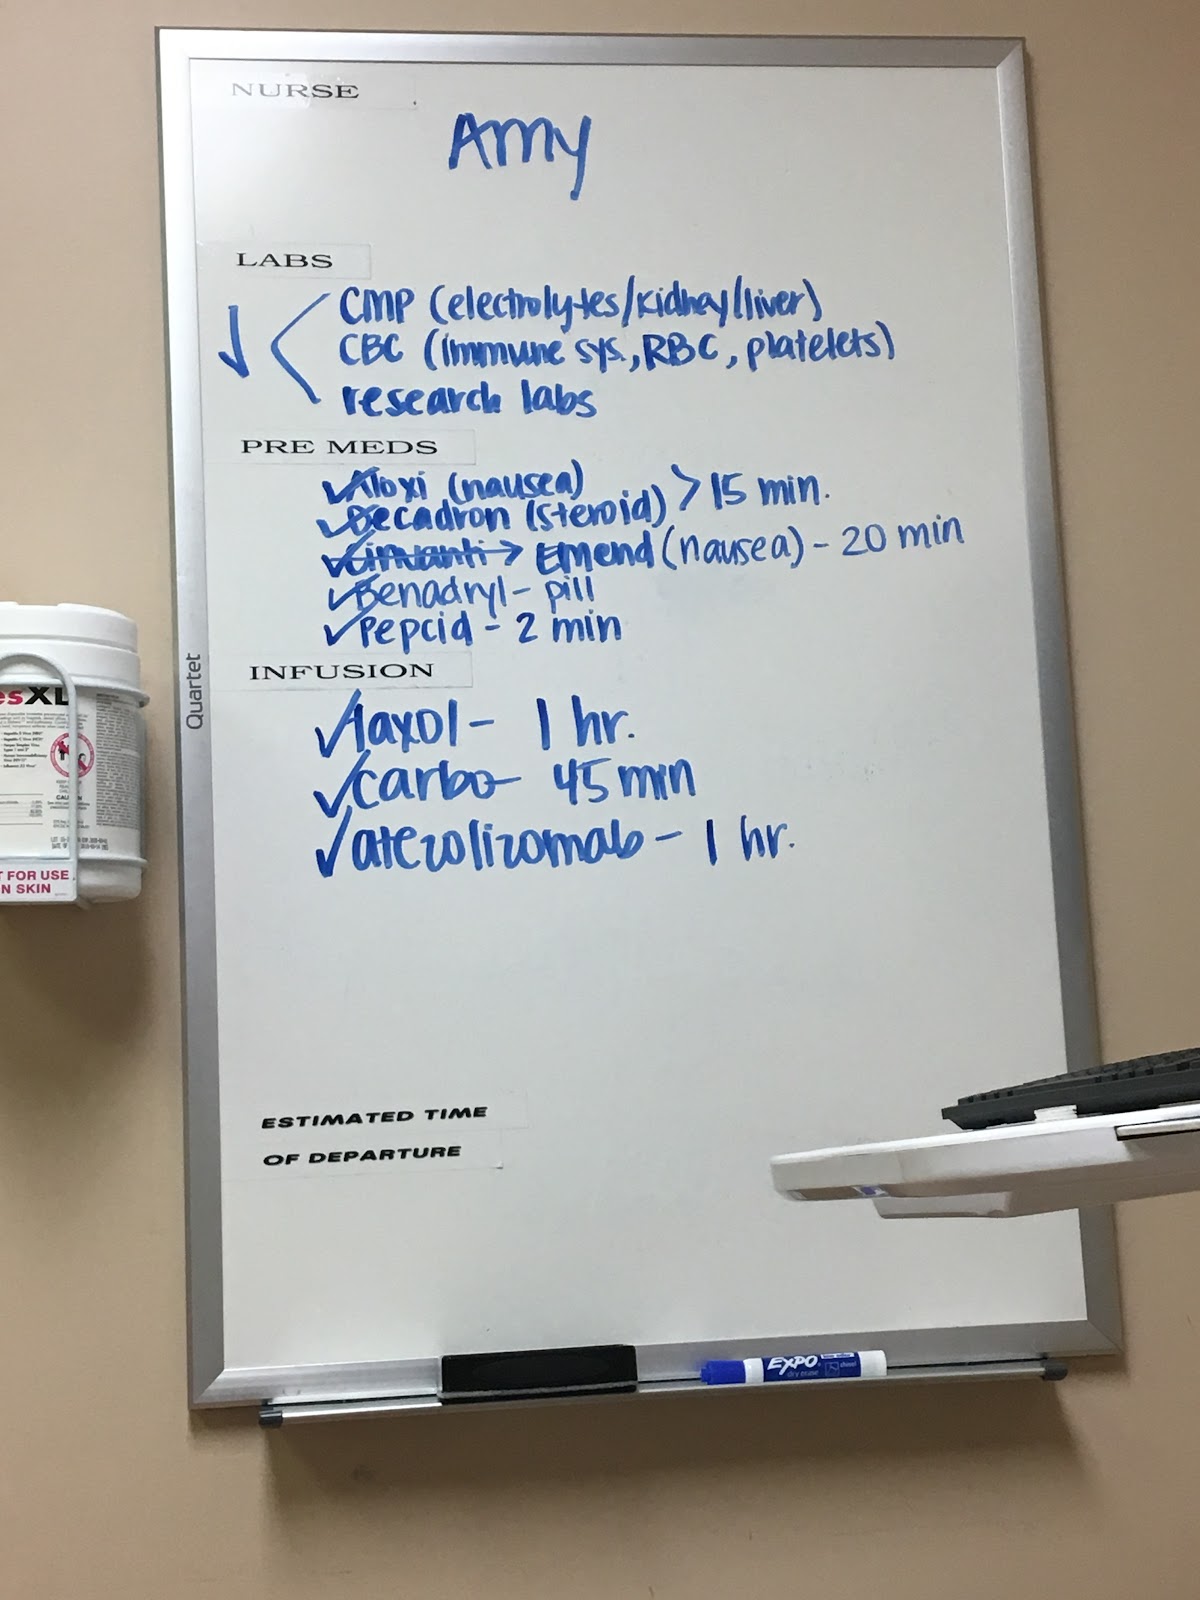 NURSE
Amy
LABS
CMP (electrolytes/kidney/liver)
CBC (immune sys., RBC, platelets)
research labs
PRE MEDS
✓Aloxi (nausea)
✓Decadron (steroid) > 15 min.
✓Cinvanti → Emend (nausea) - 20 min
✓Benadryl - pill
✓Pepcid - 2 min
INFUSION
✓Taxol - 1 hr.
✓Carbo - 45 min
✓atezolizomab - 1 hr.
ESTIMATED TIME
OF DEPARTURE
Quartet
EXPO
dry erase
esXL
T FOR USE
N SKIN